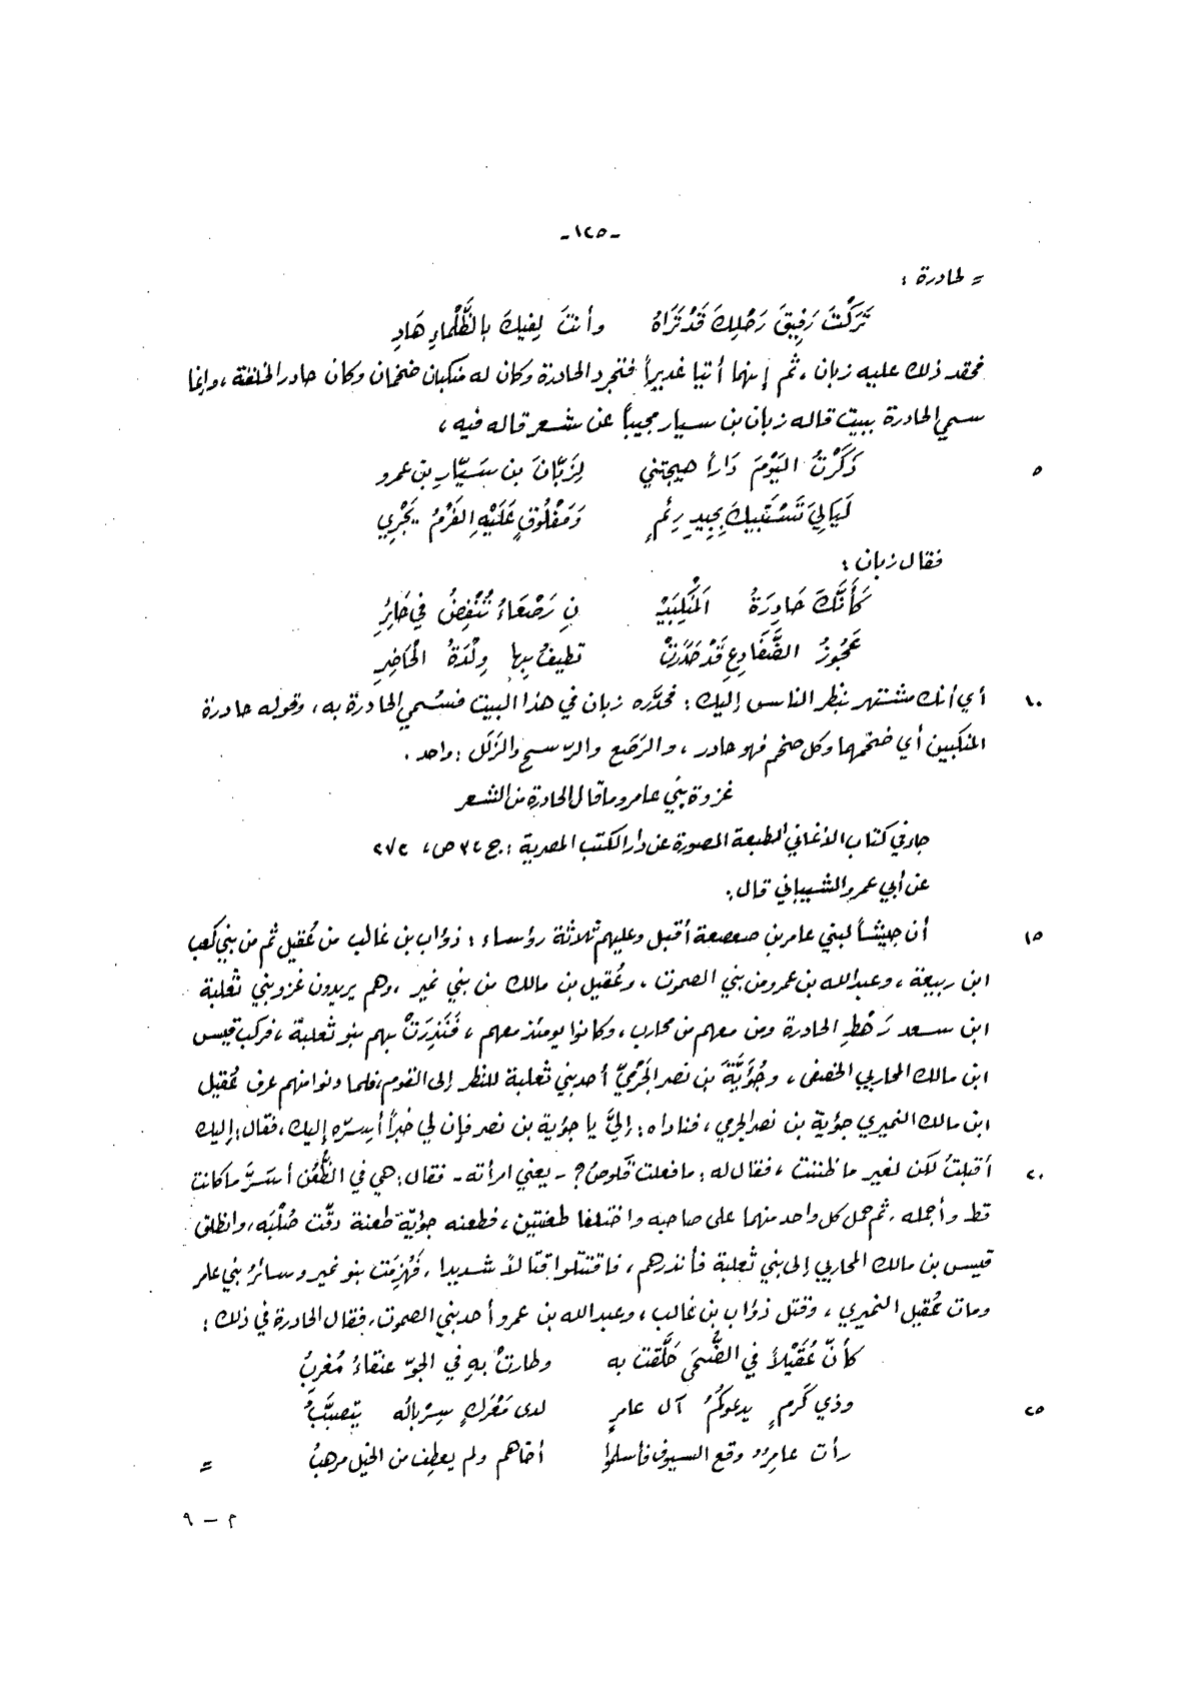 -١٢٥-
= لحادرة :
تَرَكْتَ رَفِيقَ رَحْلِكَ قَدْ تَرَاهُ وأنتَ لِفِيكَ بالظَّلْماءِ هَادِ
فحقد ذلك عليه زبان ، ثم إنهما أتيا غديراً فتجرد الحادرة وكان له منكبان ضخمان وكان حادر الخلقة ، وإنما
سمي الحادرة ببيت قاله زبان بن سيار مجيباً عن شعر قاله فيه ،
٥ ذَكَرْتُ اليَوْمَ دَاراً هيجتني لِزَبَّانَ بن سَيّارِ بن عمرو
لَيَالِيَ تَسْتَبِيكَ بِجِيدِ رِئْمٍ وَمَفْلُوقٍ عَلَيْهِ الفَرْمُ يَجْرِي
فقال زبان :
كَأَنَّكَ حَادِرَةُ المَنْكِبَيْـ ـنِ رَصْعَاءُ تُنْقِضُ في حَائِرِ
عَجُوزُ الضَّفَادِعِ قَدْ حَدَرَتْ تطيفُ بِها وِلْدَةُ الْحَاضِرِ
١٠ أي أنك مشتهر ينظر الناس إليك : فحدَّره زبان في هذا البيت فسُمي الحادرة به ، وقوله حادرة
المنكبين أي ضخمهما وكل ضخم فهو حادر ، والرَصَع والرّسح والزَلَل : واحد .
غزوة بني عامر وما قال الحادرة من الشعر
جاء في كتاب الأغاني الطبعة المصورة عن دار الكتب المصرية : ج ٣ ص ، ٢٧٢
عن أبي عمرو الشيباني قال :
١٥ أن جيشاً لبني عامر بن صعصعة أقبل وعليهم ثلاثة رؤساء : ذؤاب بن غالب من عُقيل ثم من بني كعب
ابن ربيعة ، وعبدالله بن عمرو من بني الصموت ، وعُقيل بن مالك من بني نمير ، وهم يريدون غزو بني ثعلبة
ابن سعد رَهْطِ الحادرة ومن معهم من محارب ، وكانوا يومئذ معهم ، فَنَذِرَتْ بهم بنو ثعلبة ، فركب قيس
ابن مالك المحاربي الخصفى ، وجُؤَيَّةَ بن نصر الجَرْميّ أحد بني ثعلبة للنظر إلى القوم ، فلما دنوا منهم عرف عُقيل
ابن مالك النميري جؤية بن نصر الجرمي ، فناداه : إليَّ يا جؤية بن نصر فإن لي خبراً أسِرّه إليك ، فقال : إليك
٢٠ أقبلتُ لكن لغير ما ظننت ، فقال له : ما فعلت قَلوصُ ? - يعني امرأته - فقال : هي في الظُّعُن أسَرَّ ما كانت
قط وأجمله . ثم حمل كل واحد منهما على صاحبه واختلفا طعنتين ، فطعنه جؤيّة طعنة دقّت صُلْبَه ، وانطلق
قيس بن مالك المحاربي إلى بني ثعلبة فأنذرهم ، فاقتتلوا قتالاً شديدا . فهُزِمَت بنو نمير وسائرُ بني عامر
ومات عُقيل النميري ، وقتل ذؤاب بن غالب ، وعبدالله بن عمرو أحد بني الصموت ، فقال الحادرة في ذلك :
كأنّ عُقَيْلاً في الضُّحَى حَلَّقت به وطارتْ بِهِ في الجوّ عنقاءُ مُغْرِبُ
٢٥ وذي كَرمٍ يدعوكُمُ آل عامرٍ لدى مَعْركٍ سِرْبالُه يتصبَّبُ
رأت عامِرٌ وقع السيوف فأسلموا أخاهم ولم يعطِف من الخيل مرهبُ =
م - ٩